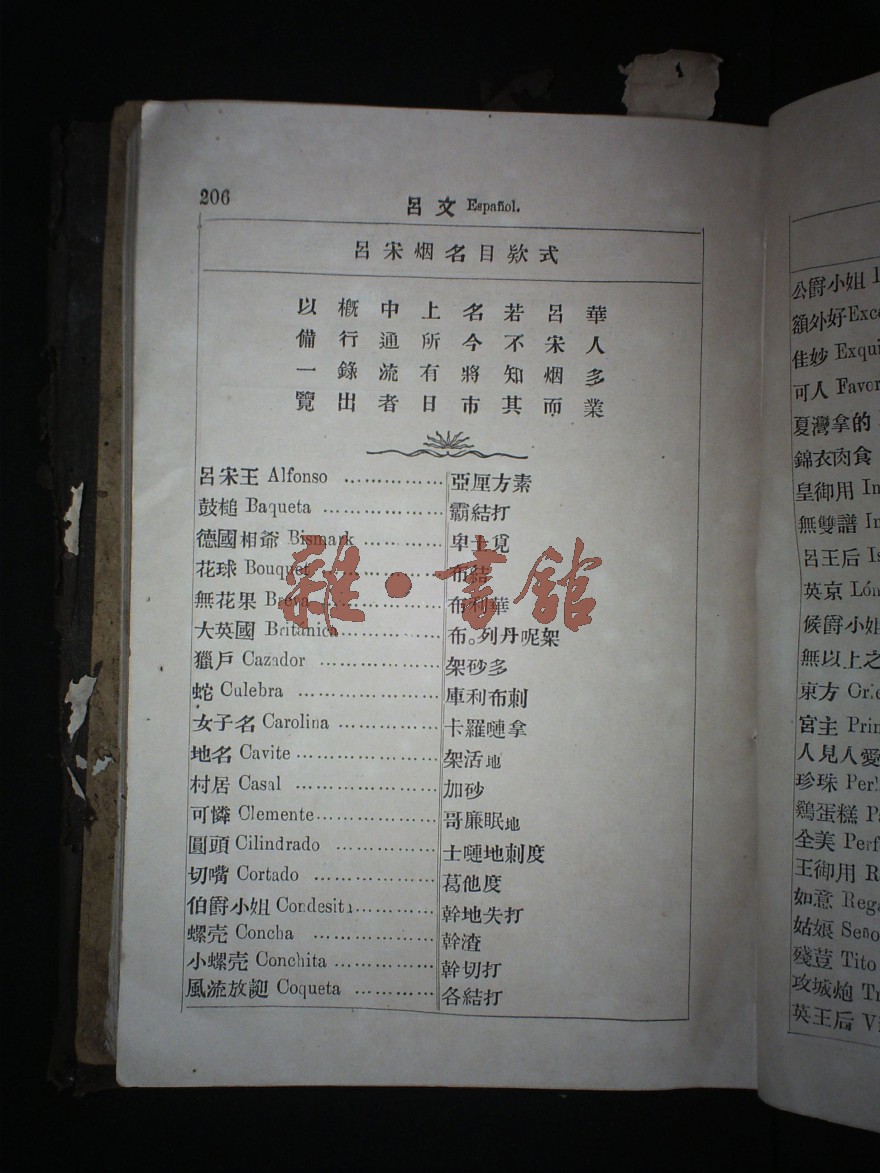 206
呂文 Español.
呂宋烟名目欵式
華人多業
呂宋烟而
若不知其
名今將市
上所有日
中通流者
槪行錄出
以備一覽
呂宋王 Alfonso ............... 亞厘方素
鼓槌 Baqueta ............... 霸結打
德國相爺 Bismark ............ 卑士覓
花球 Bouquet ............... 布結
無花果 Breva ............... 布利華
大英國 Británica ............ 布。列丹呢架
獵戶 Cazador ............... 架砂多
蛇 Culebra ............... 庫利布刺
女子名 Carolina ............ 卡羅嗹拿
地名 Cavite ............... 架活地
村居 Casal ............... 加砂
可憐 Clemente ............... 哥廉眠地
圓頭 Cilindrado ............ 士嗹地刺度
切嘴 Cortado ............... 葛他度
伯爵小姐 Condesita ............ 幹地失打
螺壳 Concha ............... 幹渣
小螺壳 Conchita ............ 幹切打
風流放誕 Coqueta ............ 各結打
雜·書館
公爵小姐
額外好 Exce
佳妙 Exqui
可人 Favor
夏灣拿的
錦衣肉食
皇御用 In
無雙譜 In
呂王后 Is
英京 Lón
候爵小姐
無以上之
東方 Orie
宮主 Prin
人見人愛
珍珠 Perl
鷄蛋糕 Pa
全美 Perf
王御用 R
如意 Rega
姑娘 Seño
殘荳 Tito
攻城炮 Tr
英王后 Vi